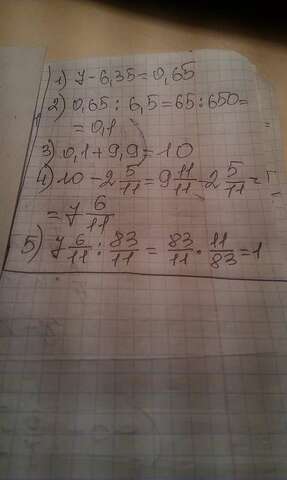 1) 7-6,35=0,65
2) 0,65 : 6,5=65:650=
=0,1
3) 0,1+9,9=10
4) 10-2 5/11=9 11/11-2 5/11=
=7 6/11
5) 7 6/11 : 83/11 = 83/11 · 11/83=1